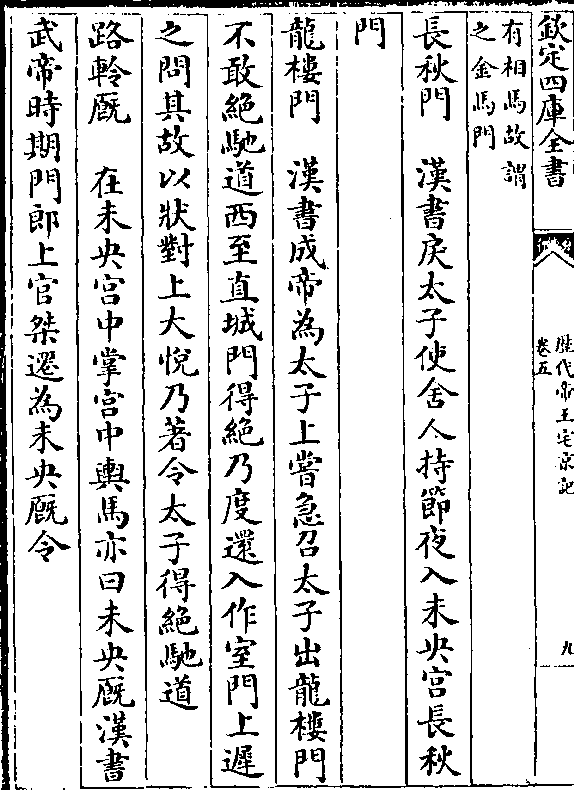 欽定四庫全書
歷代帝王宅京記
卷五
九
有相馬故謂
之金馬門
長秋門　漢書戾太子使舍人持節夜入未央宫長秋
門
龍樓門　漢書成帝為太子上嘗急召太子出龍樓門
不敢絶馳道西至直城門得絶乃度還入作室門上遲
之問其故以狀對上大悦乃著令太子得絶馳道
路軨厩　在未央宫中掌宫中輿馬亦曰未央厩漢書
武帝時期門郎上官桀遷為未央厩令